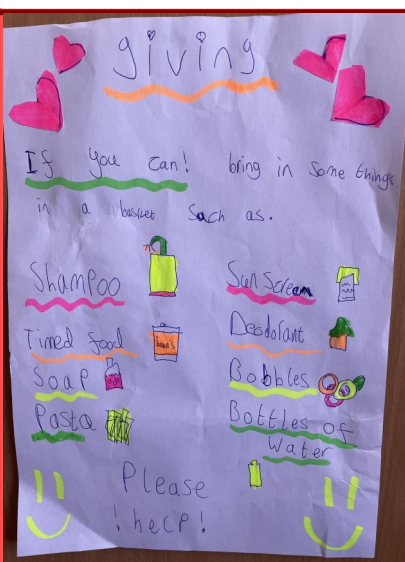 giving
If you can! bring in some things
in a basket Such as.
Shampoo
Timed food
beans
Soap
Pasta
Sun Scream
Deodorant
Bobbles
Bottles of
Water
Please
! help !